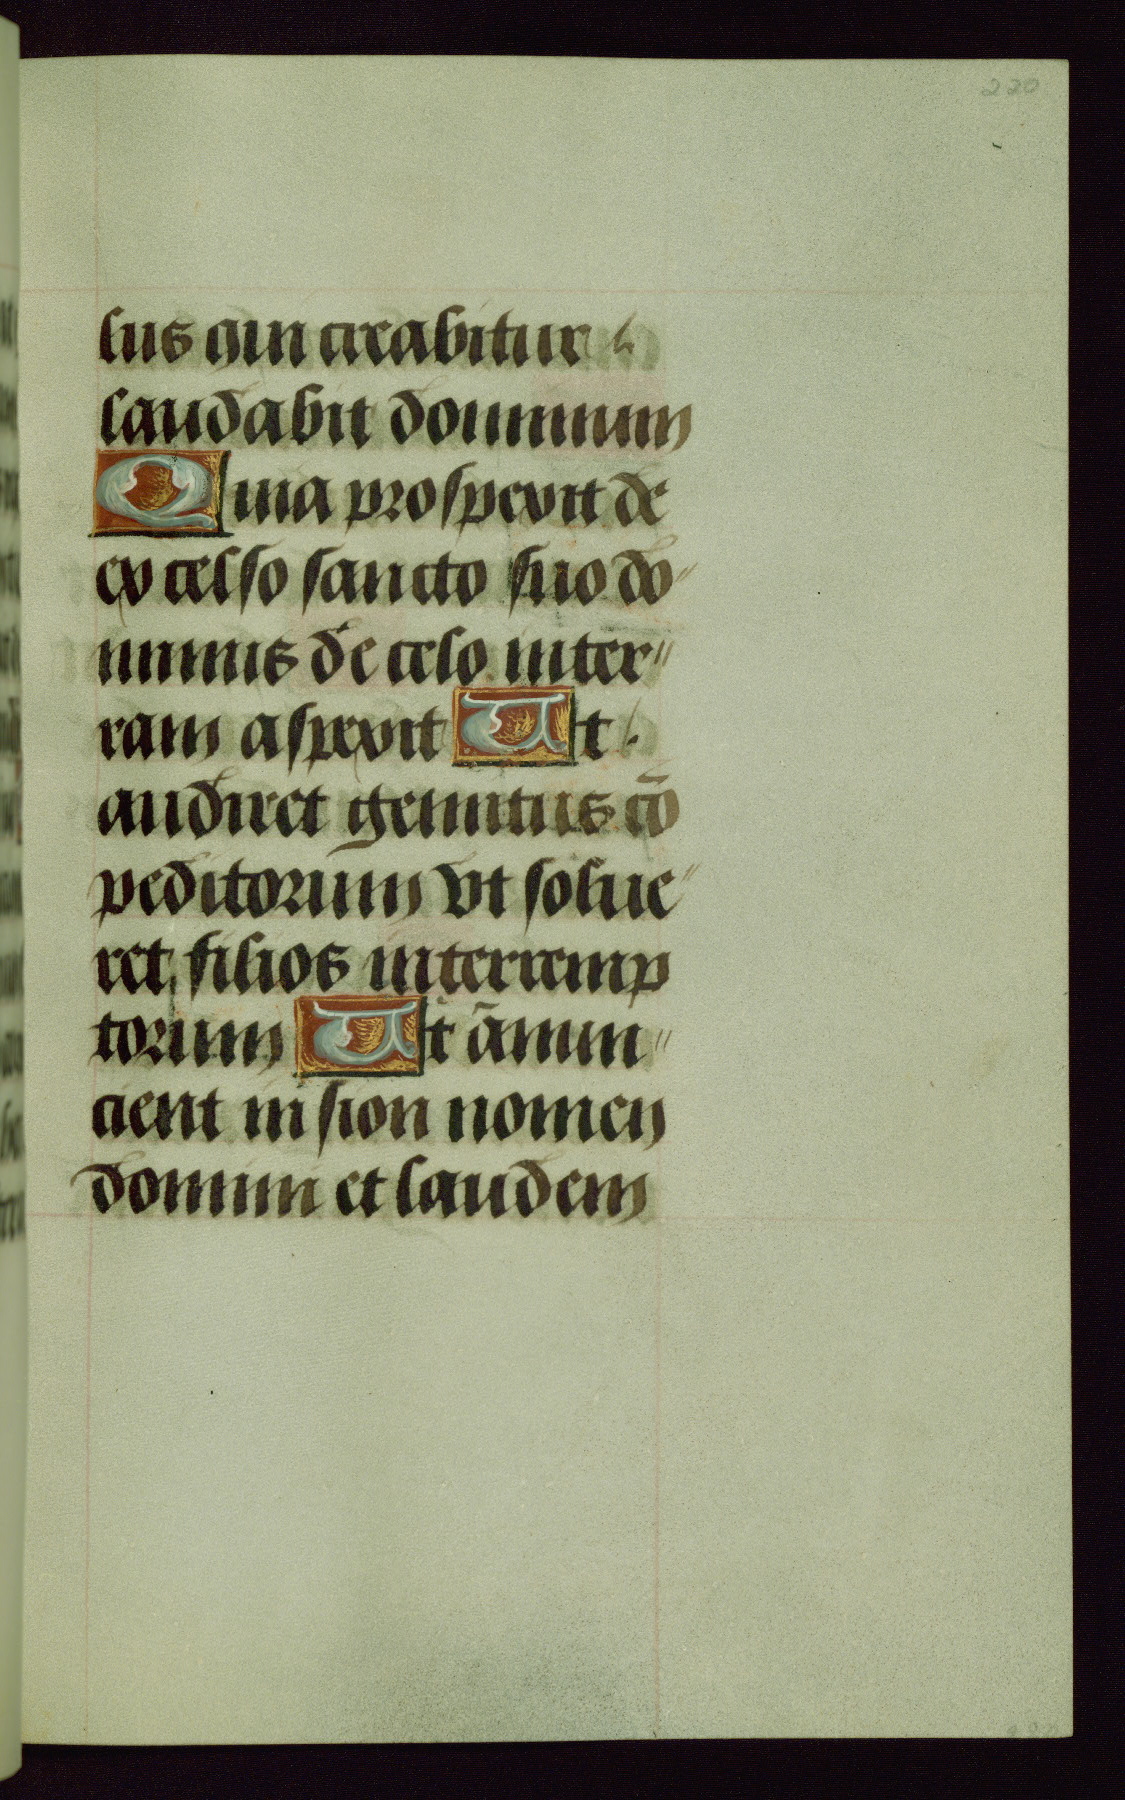 220
lus qui creabitur
laudabit dominum
Quia prospexit de
excelso sancto suo do
minus de celo in ter
ram aspexit Ut
audiret gemitus cō
peditorum vt solue
ret filios interremp
torum Ut ānun
cient in sion nomen
domini et laudem